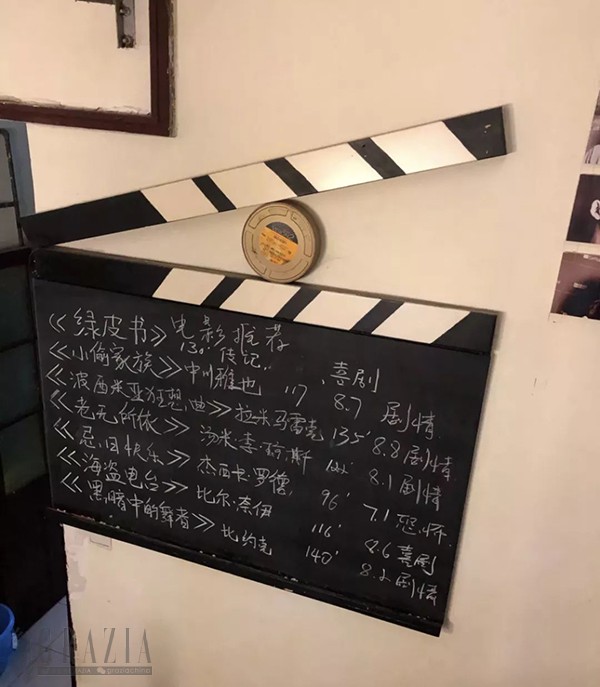 电影推荐
《绿皮书》 130' 传记.. 喜剧
《小偷家族》 中川雅也 117 8.7 剧情
《波西米亚狂想 》 拉米马雷克 135' 8.8 剧情
《老无所依》 汤米·李·琼斯 8.1 剧情
《忌日快乐》 杰西卡·罗德 96' 7.1 恐怖
《海盗电台》 比尔·奈伊 116' 8.6 喜剧
《黑暗中的舞者》 比约克 140' 8.2 剧情
GRAZIA
graziachina